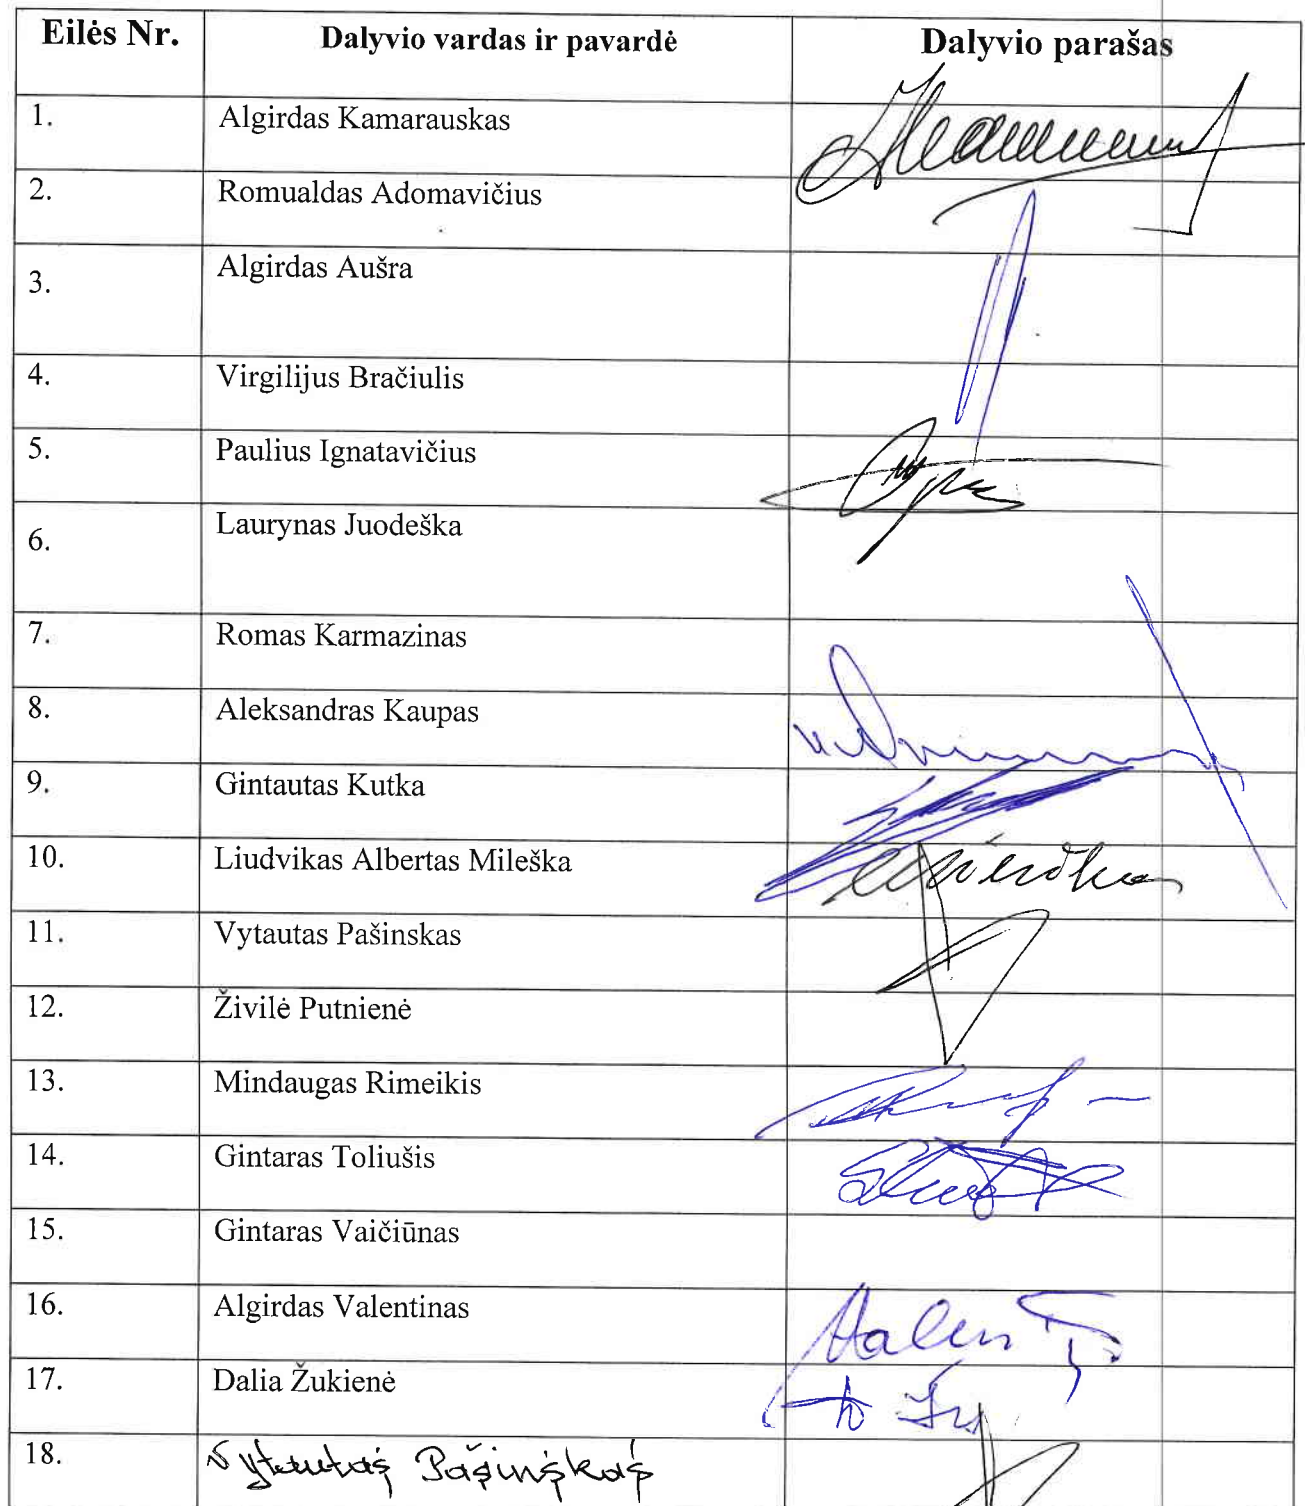 Eilės Nr. Dalyvio vardas ir pavardė Dalyvio parašas
1. Algirdas Kamarauskas
2. Romualdas Adomavičius
3. Algirdas Aušra
4. Virgilijus Bračiulis
5. Paulius Ignatavičius
6. Laurynas Juodeška
7. Romas Karmazinas
8. Aleksandras Kaupas
9. Gintautas Kutka
10. Liudvikas Albertas Mileška
11. Vytautas Pašinskas
12. Živilė Putnienė
13. Mindaugas Rimeikis
14. Gintaras Toliušis
15. Gintaras Vaičiūnas
16. Algirdas Valentinas
17. Dalia Žukienė
18. Vytautas Pašinskas